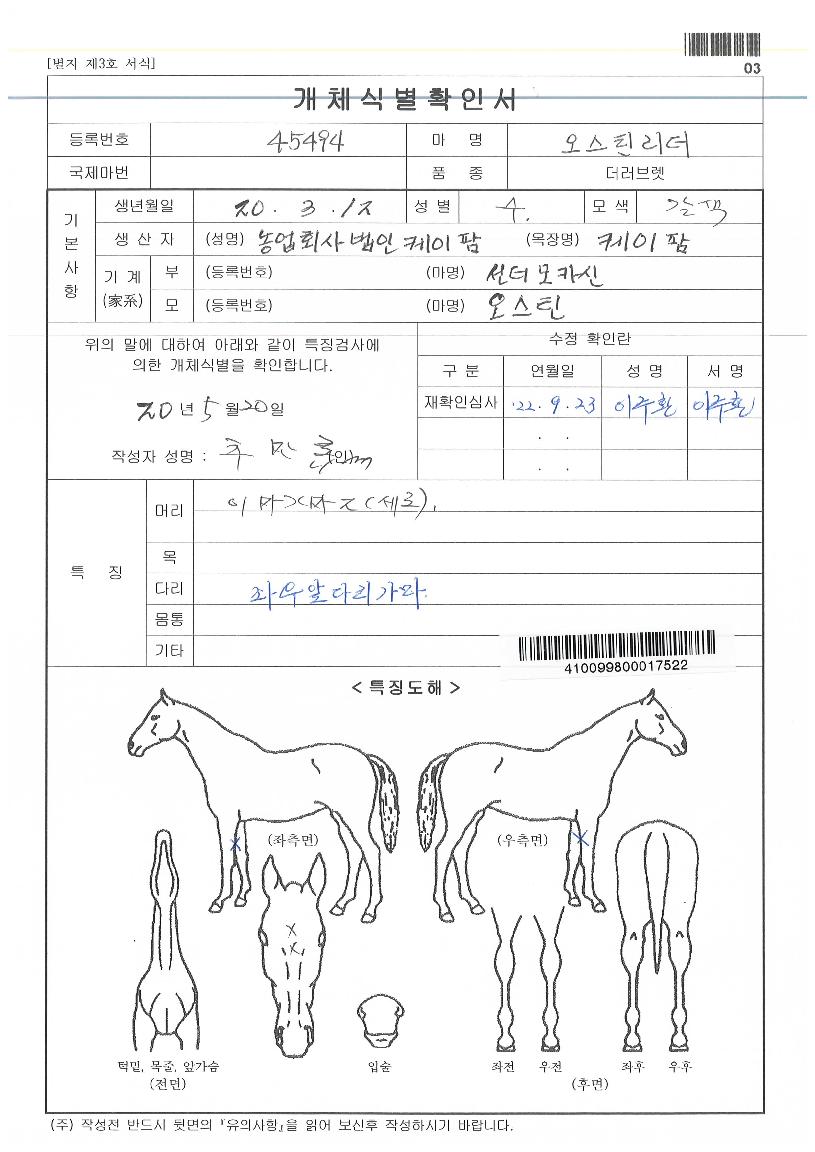 03
[별지 제3호 서식]
개체식별확인서
등록번호 45494 마 명 오스틴리더
국제마번 품 종 더러브렛
기본사항
생년월일 20 . 3 . 12 성 별 수. 모 색 갈색
생 산 자 (성명) 농업회사법인케이팜 (목장명) 케이팜
기 계 (家系) 부 (등록번호) (마명) 선더모카신
모 (등록번호) (마명) 오스틴
위의 말에 대하여 아래와 같이 특징검사에
의한 개체식별을 확인합니다.
20 년 5 월 20 일
작성자 성명 :
수정 확인란
구 분 연월일 성 명 서 명
재확인심사 '22 . 9 . 23 이주환 이주환
. .
. .
특 징
머리 이마가마 2 (세로).
목
다리 좌우앞다리가마.
몸통
기타
410099800017522
< 특징도해 >
(좌측면) (우측면)
턱밑, 목줄, 앞가슴 입술 좌전 우전 좌후 우후
(전면) (후면)
(주) 작성전 반드시 뒷면의 『유의사항』을 읽어 보신후 작성하시기 바랍니다.